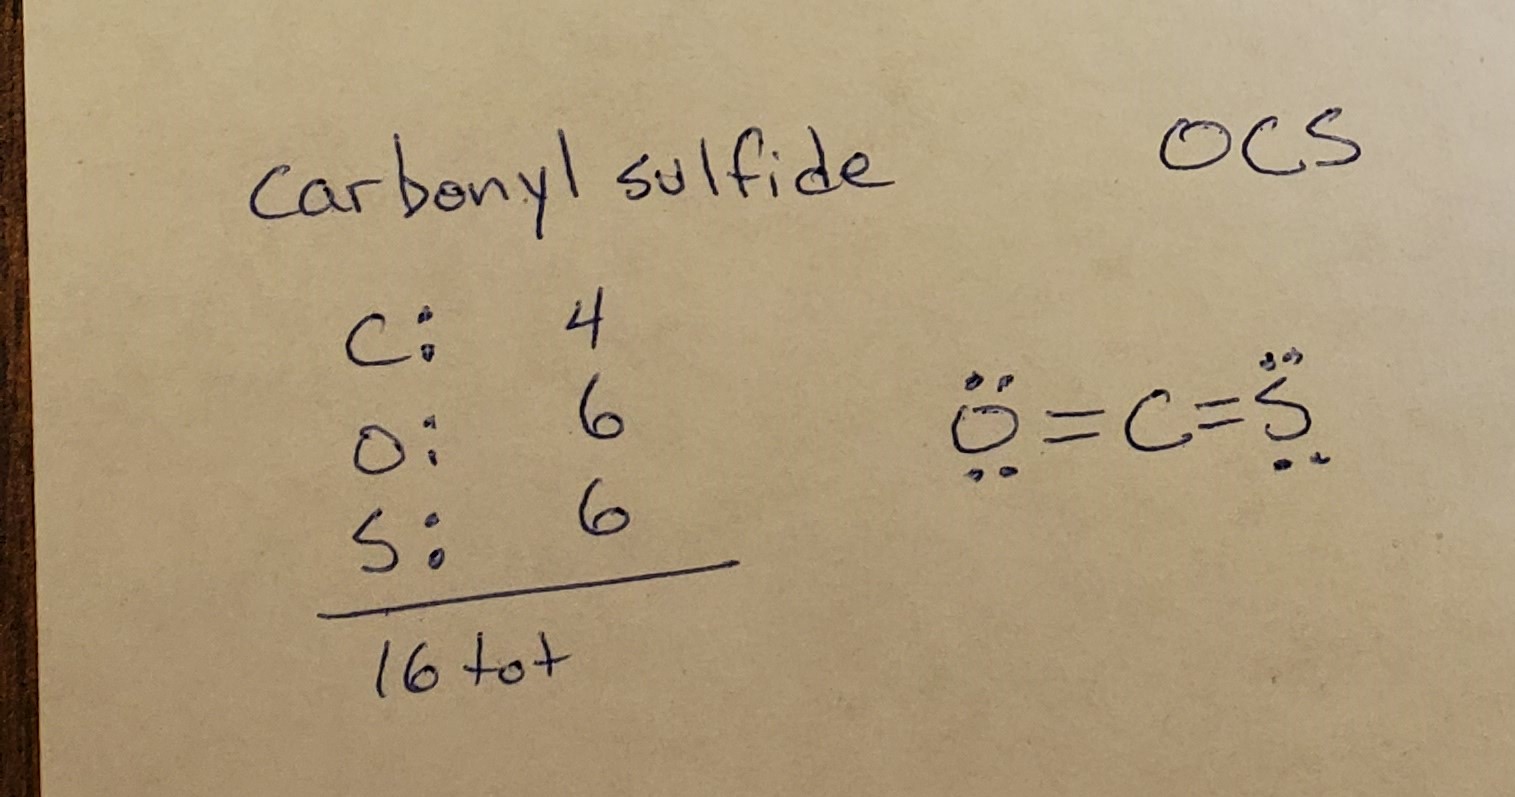 Carbonyl sulfide OCS
C: 4
O: 6
S: 6
16 tot
O=C=S